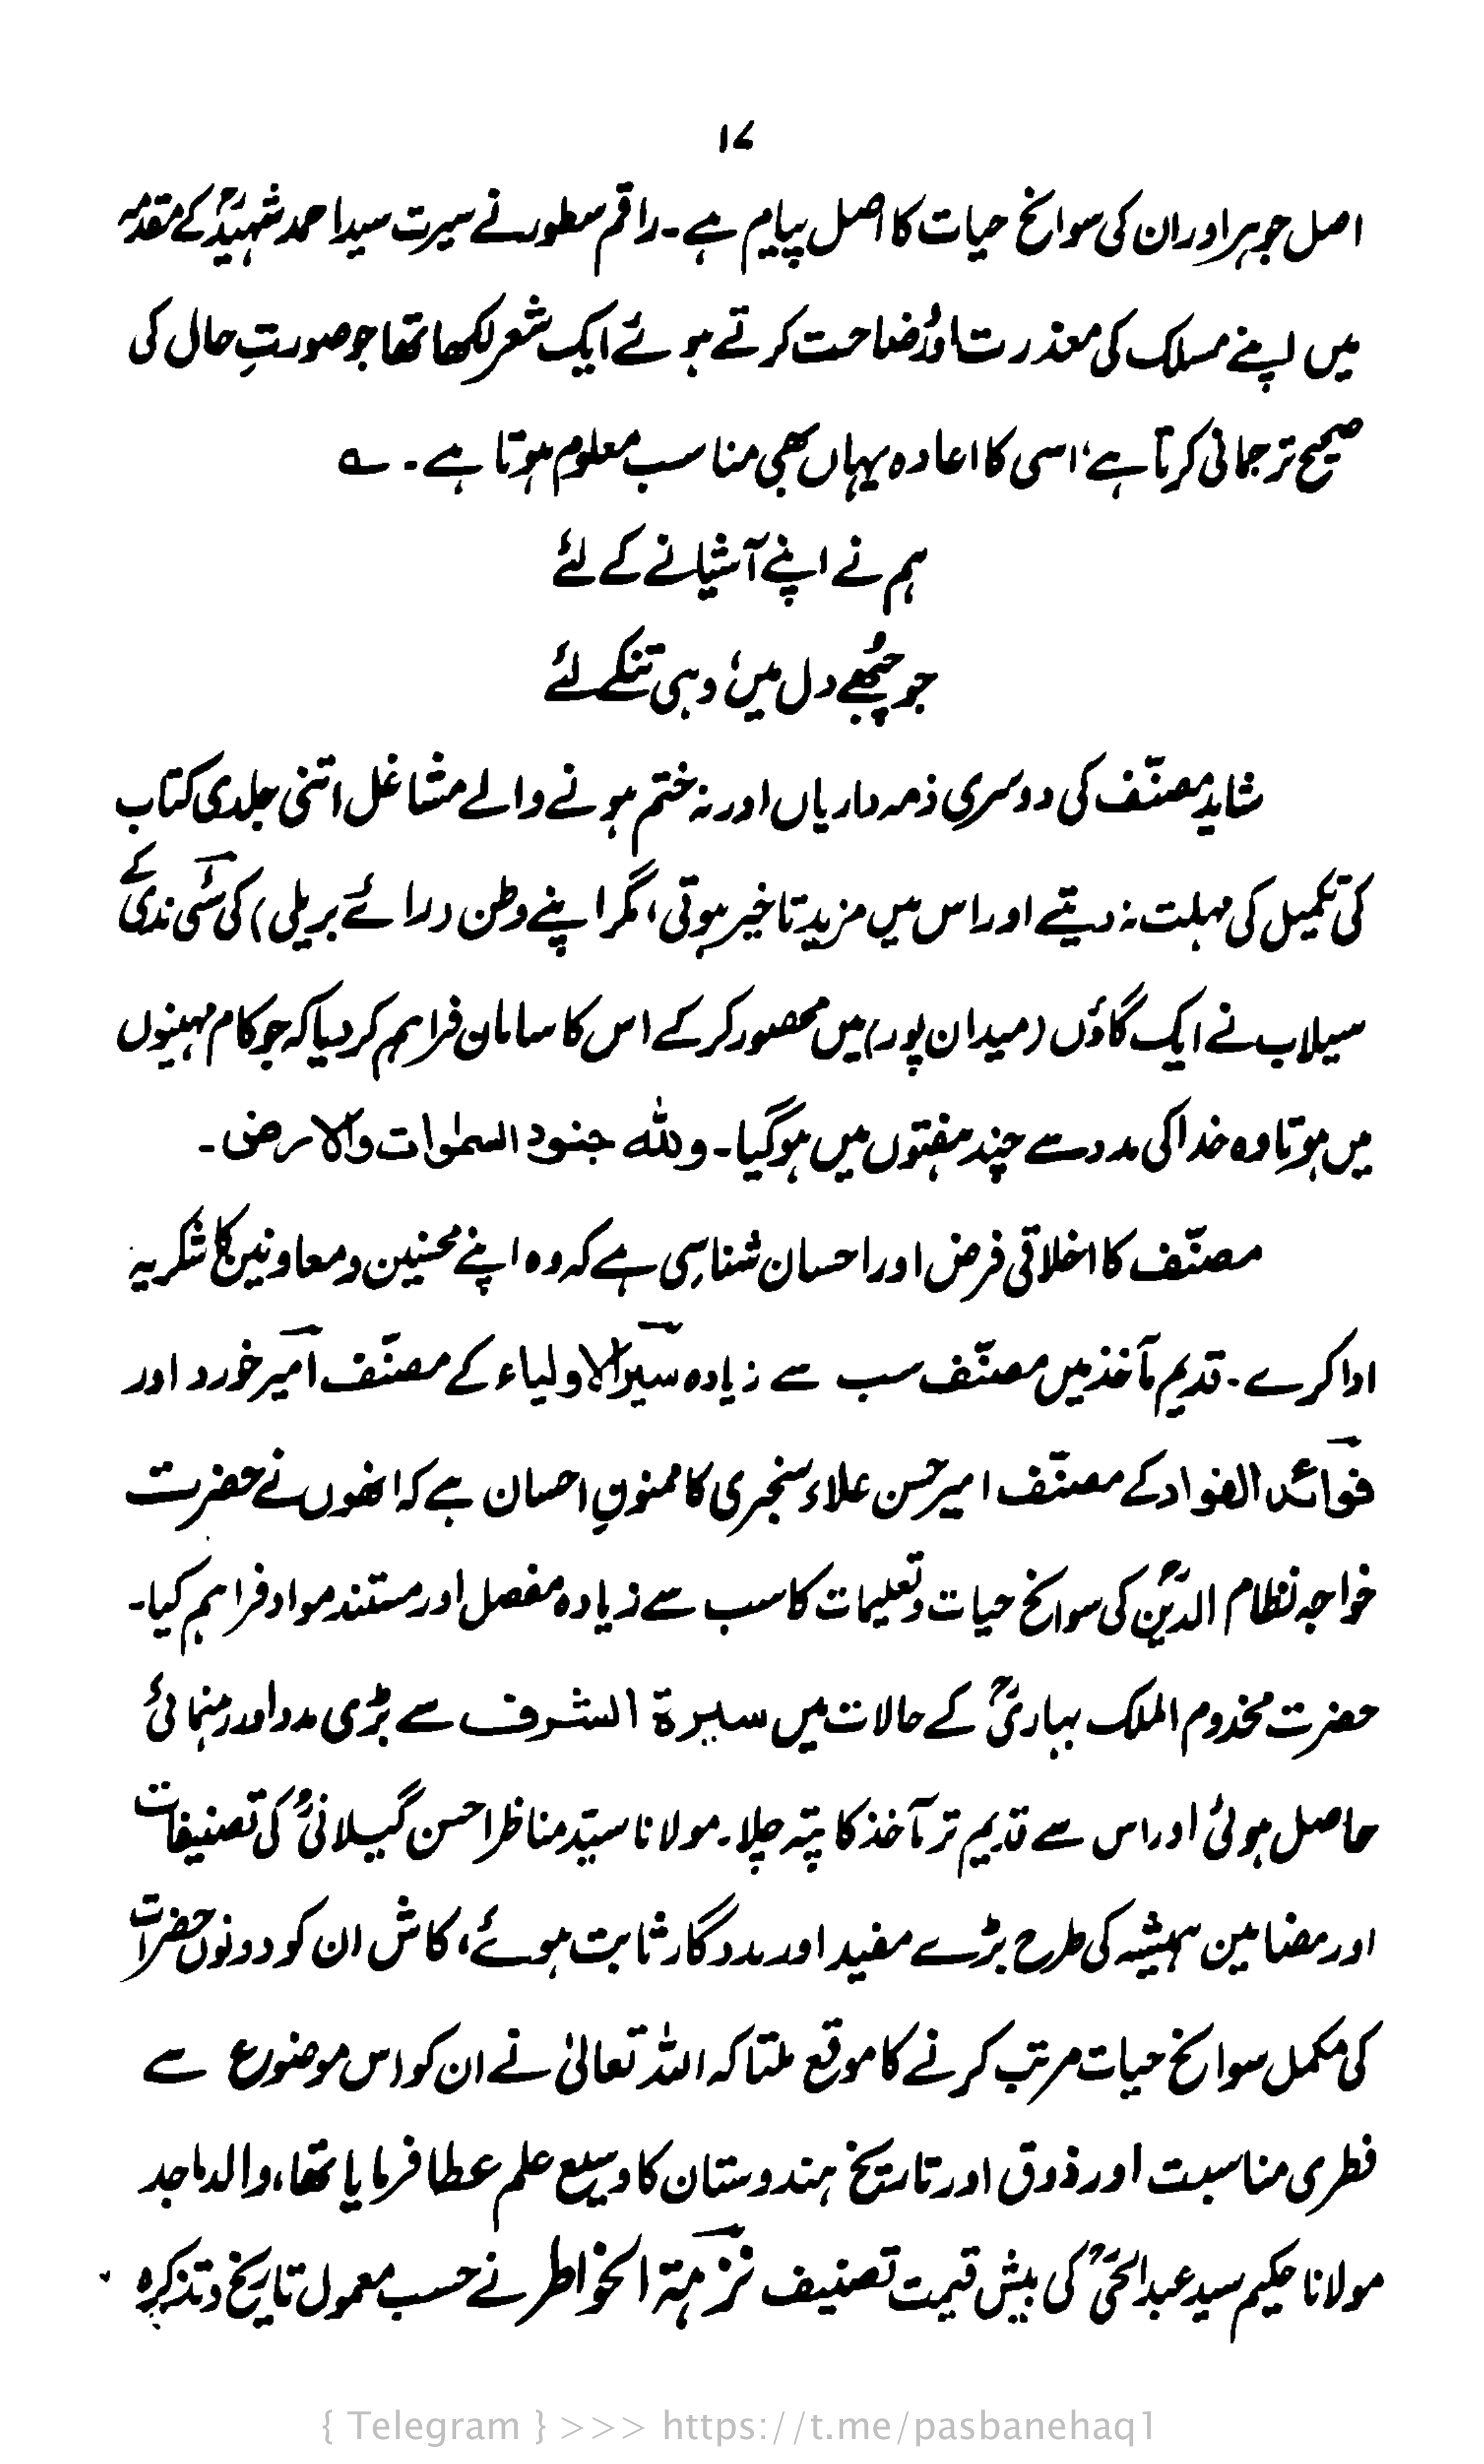 ۱۷
اصل جوہر اور ان کی سوانح حیات کا اصل پیام ہے۔ راقم سطور نے سیرت سید احمد شہیدؒ کے مقدمہ
میں اپنے مسلک کی معذرت اور وضاحت کرتے ہوئے ایک شعر لکھا تھا جو صورتِ حال کی
صحیح ترجمانی کرتا ہے، اسی کا اعادہ یہاں بھی مناسب معلوم ہوتا ہے۔ ؎
ہم نے اپنے آشیانے کے لئے
جو چُبھے دل میں، وہی تنکے لئے
شاید مصنّف کی دوسری ذمہ داریاں اور نہ ختم ہونے والے مشاغل اتنی جلدی کتاب
کی تکمیل کی مہلت نہ دیتے اور اس میں مزید تاخیر ہوتی، مگر اپنے وطن (رائے بریلی) کی سئی ندی کے
سیلاب نے ایک گاؤں (میدان پور) میں محصور کر کے اس کا سامان فراہم کر دیا کہ جو کام مہینوں
میں ہوتا وہ خدا کی مدد سے چند ہفتوں میں ہوگیا۔ وللہ جنود السمٰوات والارض۔
مصنّف کا اخلاقی فرض اور احسان شناسی ہے کہ وہ اپنے محسنین و معاونین کا شکریہ
ادا کرے۔ قدیم مآخذ میں مصنّف سب سے زیادہ سیر الاولیاء کے مصنّف امیر خورد اور
فوائد الفواد کے مصنّف امیر حسن علاء سنجری کا ممنونِ احسان ہے کہ انھوں نے حضرت
خواجہ نظام الدینؒ کی سوانح حیات و تعلیمات کا سب سے زیادہ مفصل اور مستند مواد فراہم کیا۔
حضرت مخدوم الملک بہاریؒ کے حالات میں سیرة الشرف سے بڑی مدد اور رہنمائی
حاصل ہوئی اور اس سے قدیم تر مآخذ کا پتہ چلا۔ مولانا سیّد مناظر احسن گیلانیؒ کی تصنیفات
اور مضامین ہمیشہ کی طرح بڑے مفید اور مددگار ثابت ہوئے، کاش ان کو دونوں حضرات
کی مکمل سوانح حیات مرتب کرنے کا موقع ملتا کہ اللہ تعالیٰ نے ان کو اس موضوع سے
فطری مناسبت اور ذوق اور تاریخ ہندوستان کا وسیع علم عطا فرمایا تھا، والد ماجد
مولانا حکیم سید عبدالحیؒ کی بیش قیمت تصنیف نزہۃ الخواطر نے حسب معمول تاریخ و تذکرہ
{ Telegram } >>> https://t.me/pasbanehaq1